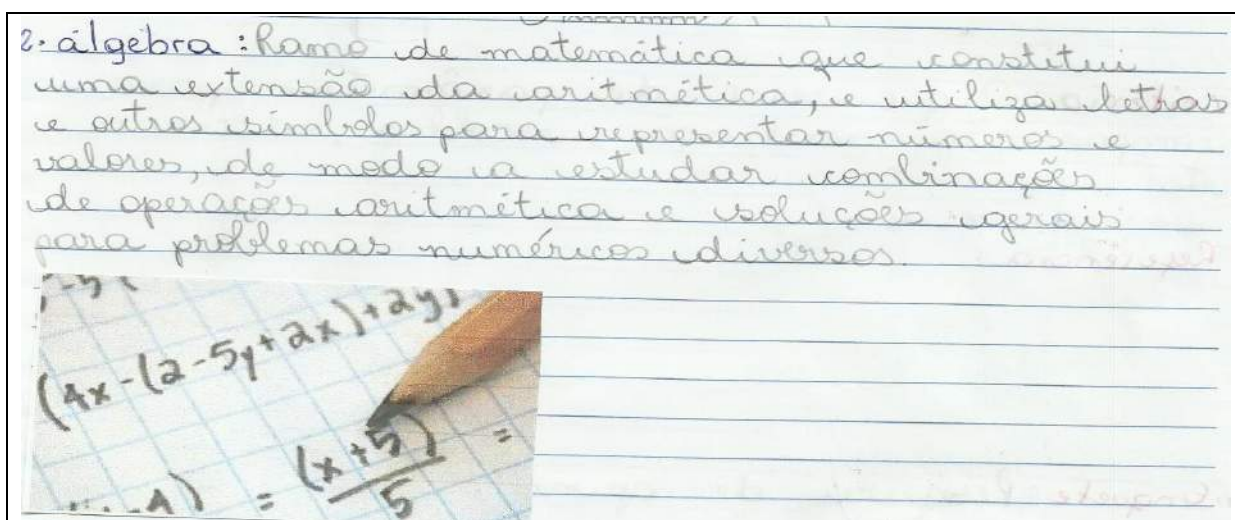 2. álgebra: Ramo de matemática que constitui
uma extensão da aritmética, e utiliza letras
e outros símbolos para representar números e
valores, de modo a estudar combinações
de operações aritmética e soluções gerais
para problemas numéricos diversos.
(4x-(2-5y+2x)+2y)
= (x+5)/5 =